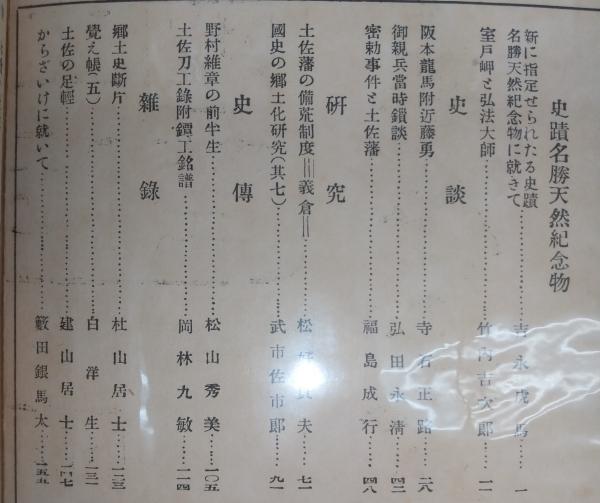 史蹟名勝天然紀念物
新に指定せられたる史蹟
名勝天然紀念物に就きて……吉永虎馬……一
室戸岬と弘法大師……竹內吉次郎……一一
史談
阪本龍馬附近藤勇……寺石正路……二八
御親兵當時鎖談……弘田永淸……四二
密勅事件と土佐藩……福島成行……四八
硏究
土佐藩の備荒制度＝義倉＝……松 夫……七一
國史の鄕土化硏究(其七)……武市佐市郞……九一
史傳
野村維章の前半生……松山秀美……一〇五
土佐刀工錄附鐔工銘譜……岡林九敏……一一四
雜錄
鄕土史斷片……杜山居士……一二三
覺え帳(五)……白洋生……一三一
土佐の足輕……建山居士……一四七
からざいけに就いて……籔田銀馬太……一五五